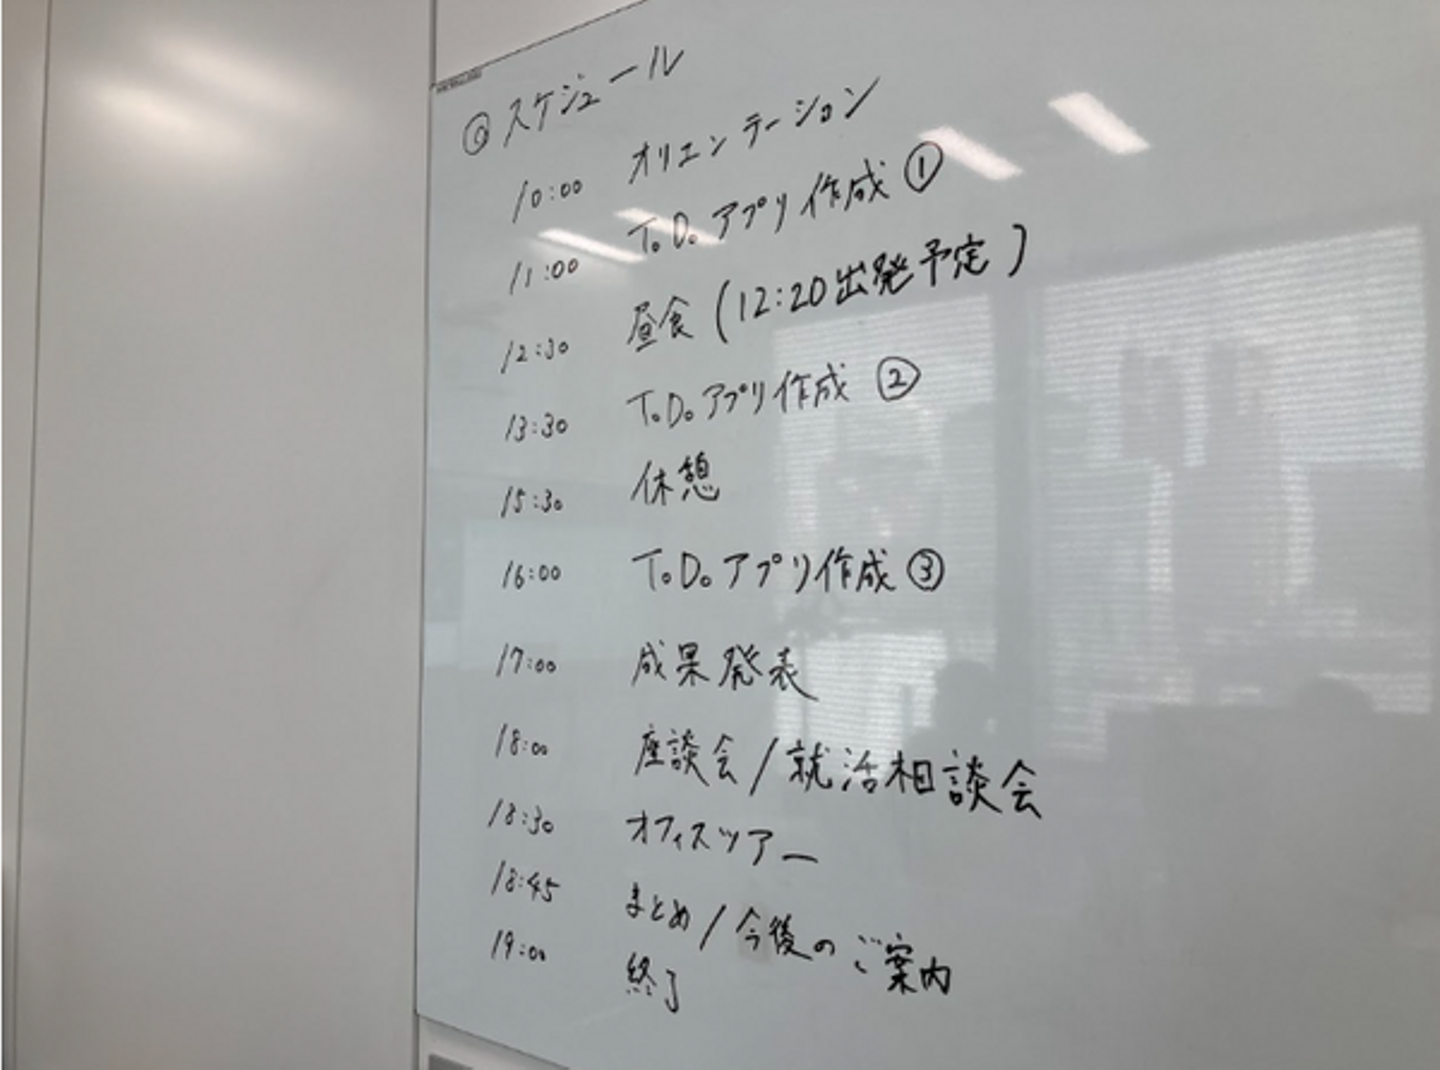 ◎ スケジュール
10:00 オリエンテーション
11:00 ToDoアプリ作成①
12:30 昼食(12:20出発予定)
13:30 ToDoアプリ作成②
15:30 休憩
16:00 ToDoアプリ作成③
17:00 成果発表
18:00 座談会/就活相談会
18:30 オフィスツアー
18:45 まとめ/今後のご案内
19:00 終了